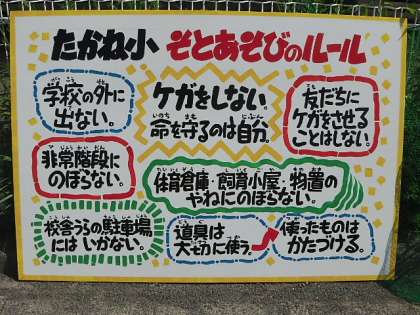 たかね小 そとあそびのルール
学校の外に
出ない。
ケガをしない
命を守るのは自分。
友だちに
ケガをさせる
ことはしない。
非常階段に
のぼらない。
体育倉庫・飼育小屋・物置の
やねにのぼらない。
校舎うらの駐車場
にはいかない。
道具は
大切に使う。
使ったものは
かたづける。